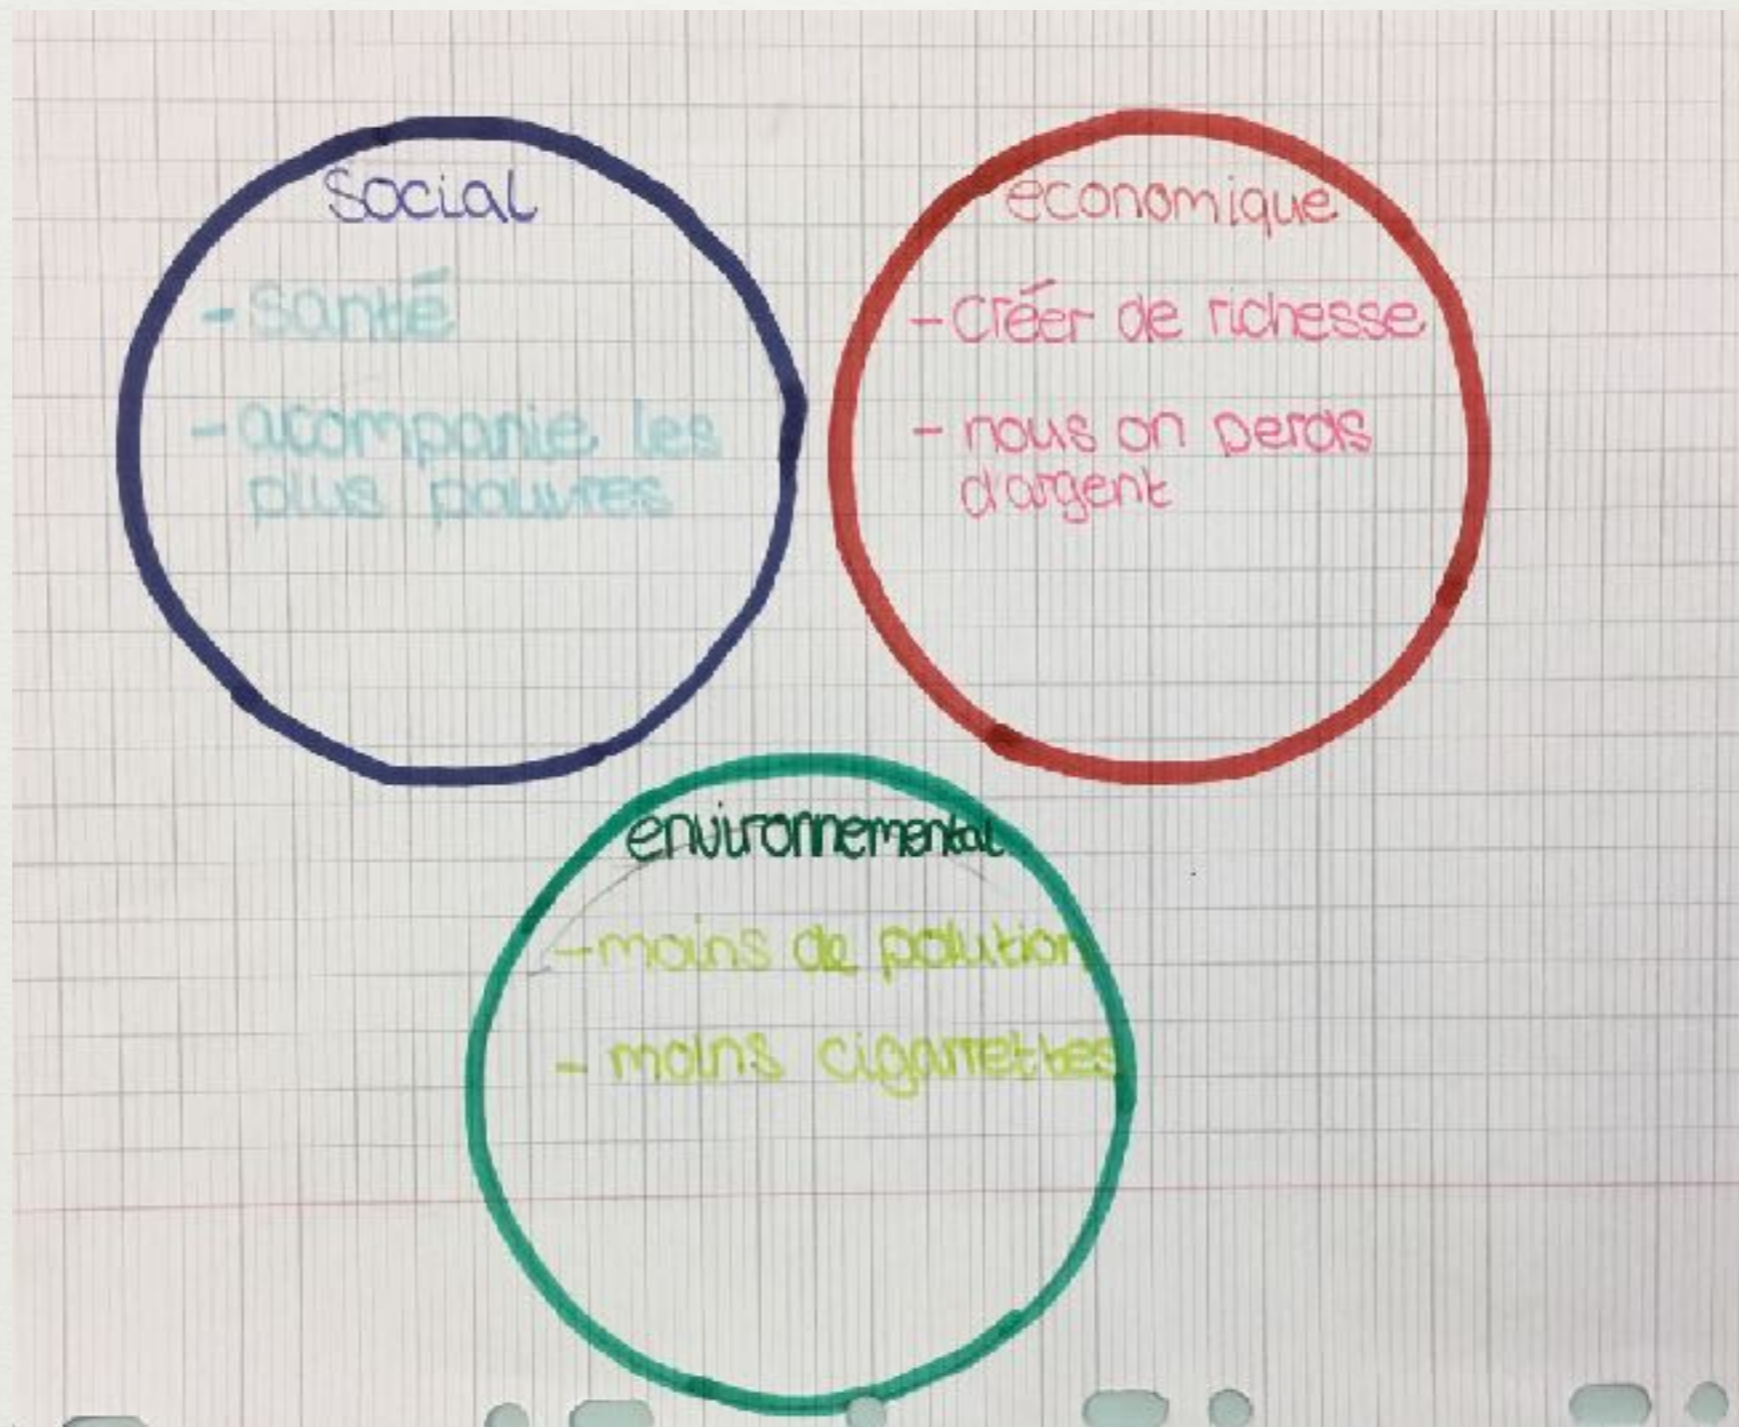 Social
- santé
- acompanie les
plus pauvres
economique
- créer de richesse
- nous on perds
d'argent
environnemental
- moins de polution
- moins cigarrettes